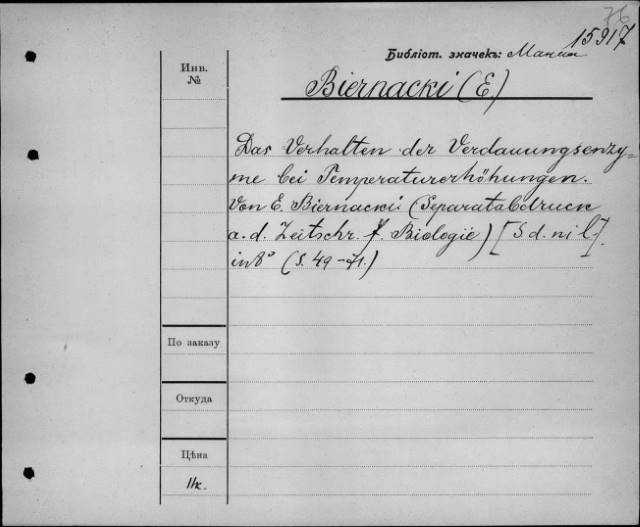 76
15917
Библіот. значекъ:
Biernacki (E)
Инв.
№
Das Verhalten der Verdauungsenzy-
me bei Temperaturerhöhungen.
Von E. Biernacki (Separatabdruck
a. d. Zeitschr. f. Biologie) [S. d. ni l.]
in 8° (S. 49-71.)
По заказу
Откуда
Цѣна